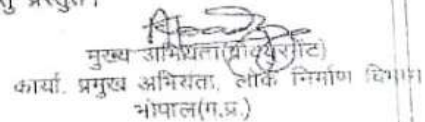 प्रस्तुत।
मुख्य अभियंता(प्रोक्यूरमेंट)
कार्या. प्रमुख अभियंता, लोक निर्माण विभाग
भोपाल(म.प्र.)